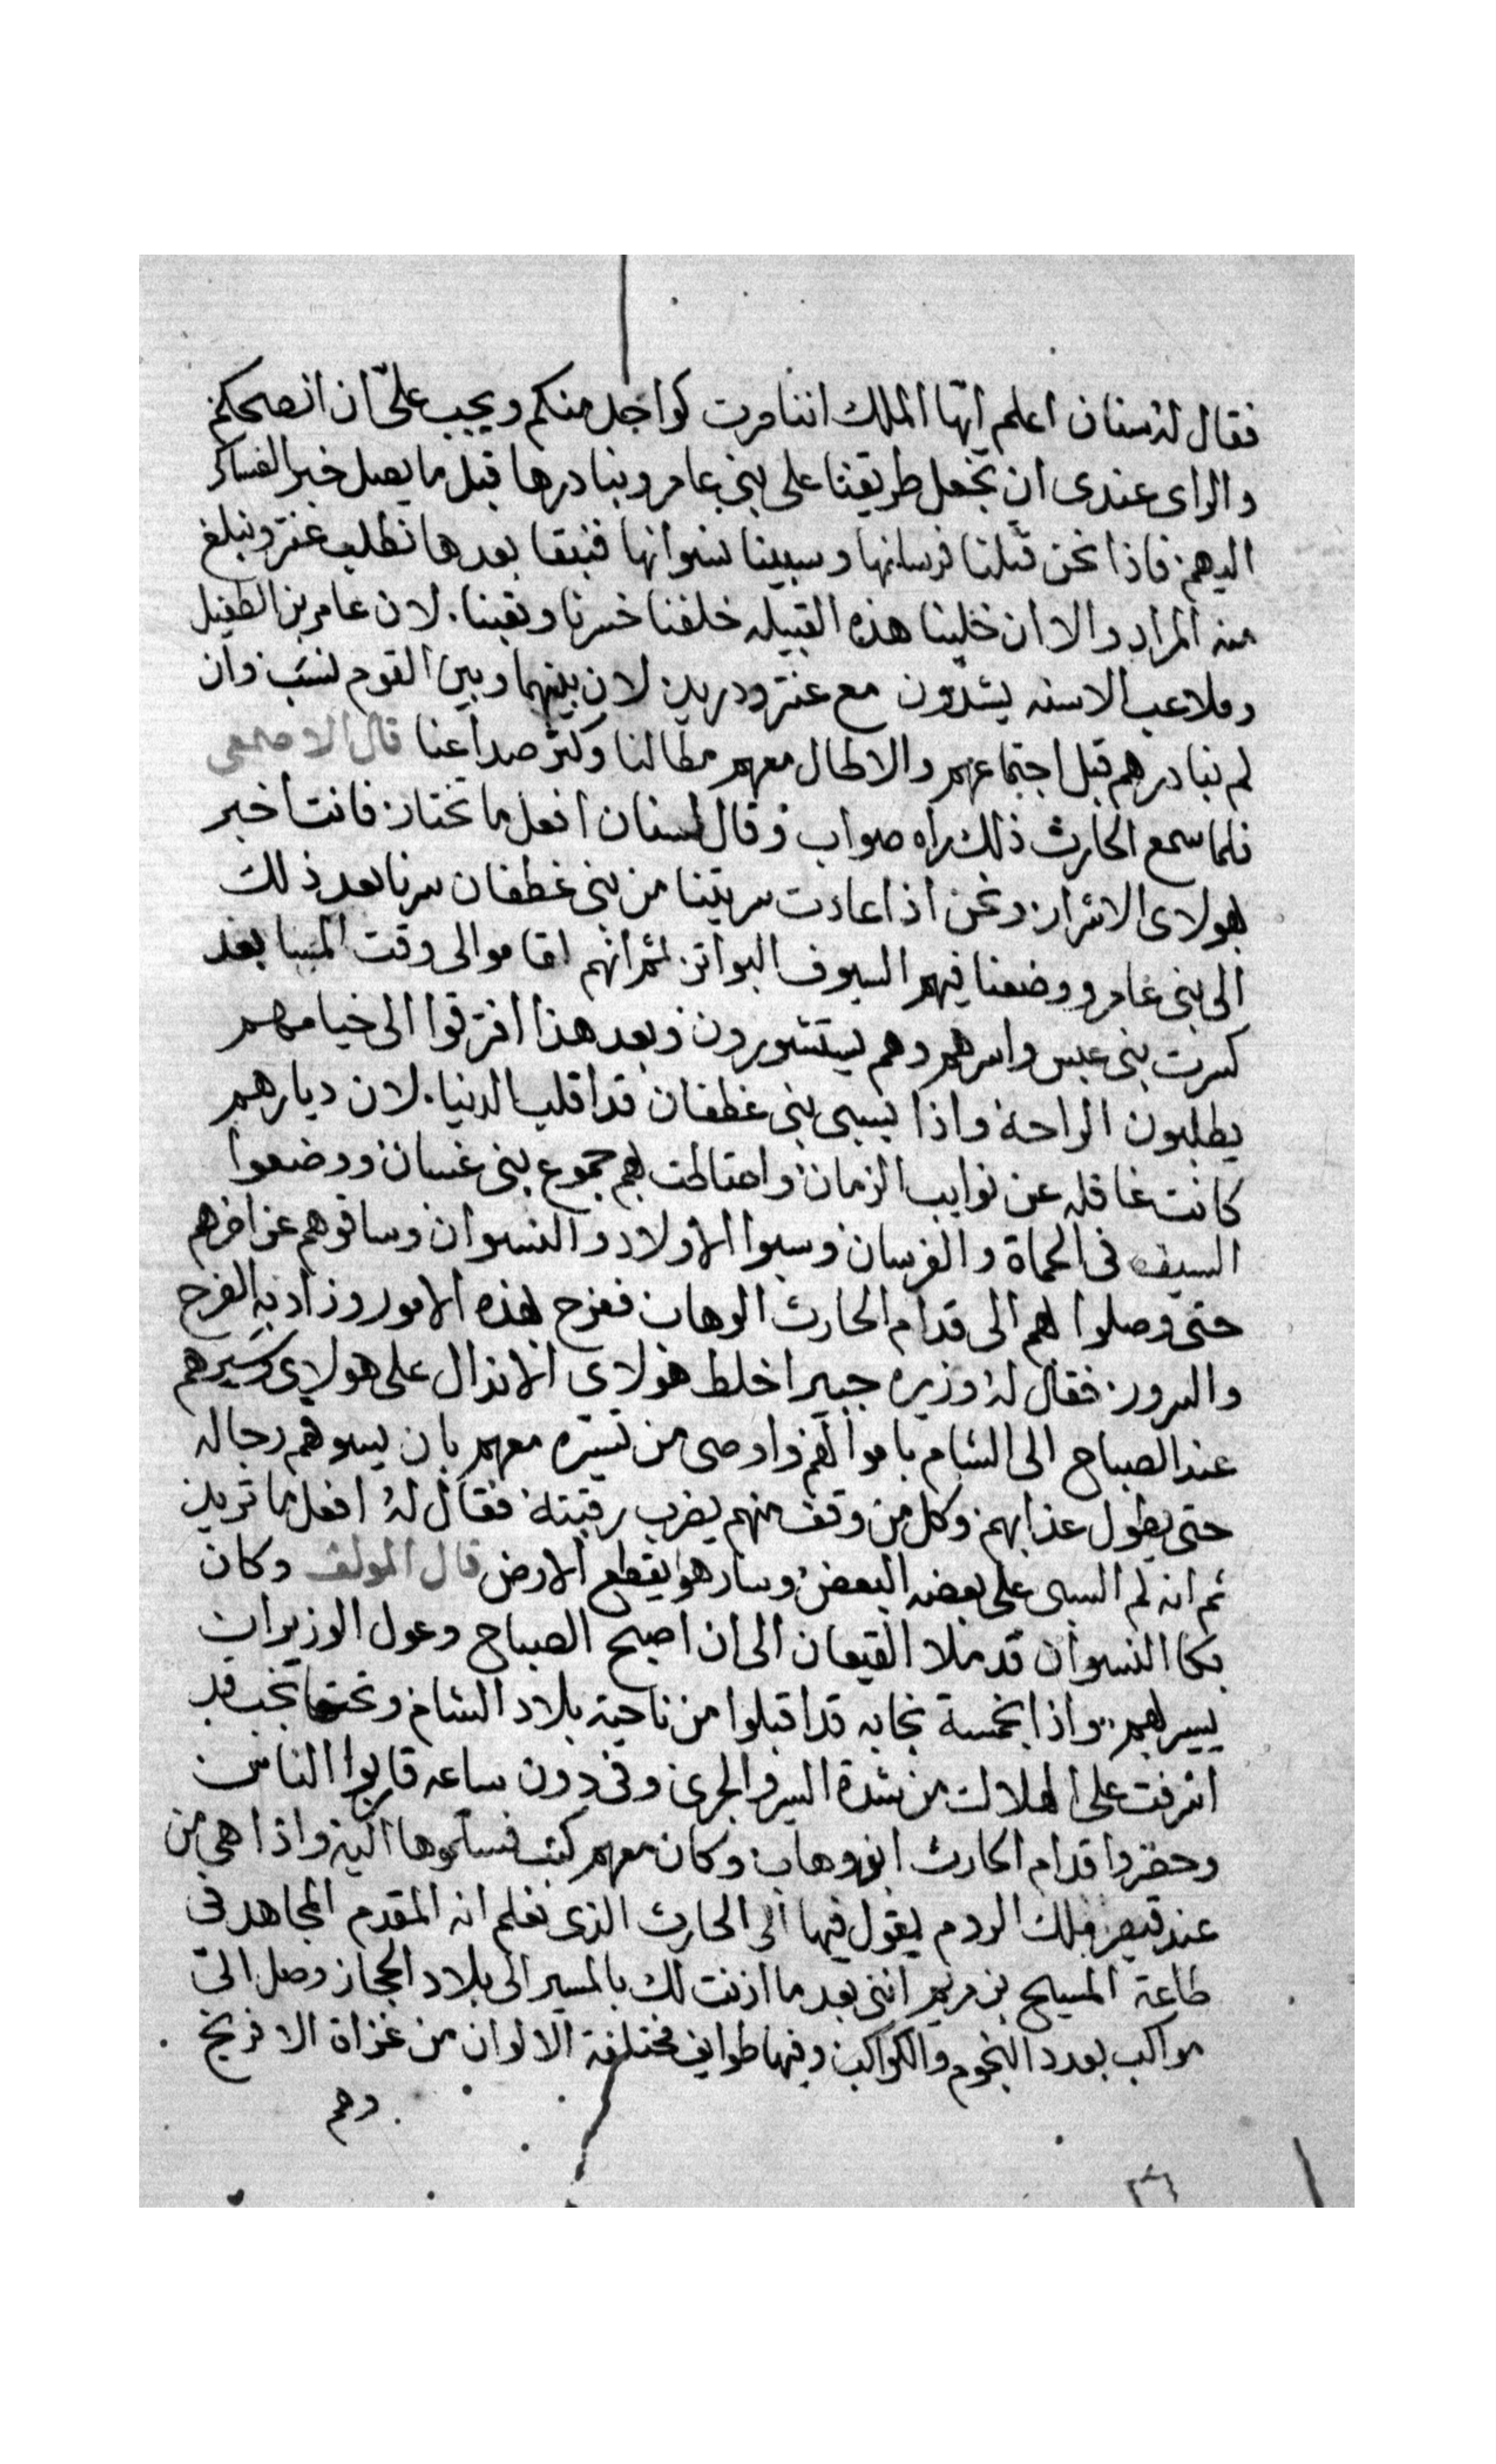 فقال له سنان اعلم ايها الملك اننا صرت كواحد منكم ويجب علىّ ان انصحكم
والراى عندى ان نجعل طريقنا على بنى عامر ونبادرها قبل ما يصل خبر العساكر
اليهم فاذا نحن قتلنا فرسانها وسبينا نسوانها فنبقا بعدها نطلب عنتر ونبلغ
منه المراد والا ان خلينا هذه القبيله خلفنا خسرنا وتعبنا. لان عامر بن الطفيل
وملاعب الاسنه يشدّون مع عنتر ودريد لان بينهما وبين القوم نسب وان
لم نبادرهم قبل اجتماعهم والا طال معهم مطالنا وكثر صداعنا قال الاصمعى
فلما سمع الحارث ذلك راه صواب وقال لسنان افعل ما تختار فانت اخبر
بهولاى الاشرار ونحن اذا عادت سريتنا من بنى غطفان سرنا بعد ذلك
الى بنى عامر ووضعنا فيهم السيوف البواتر ثم انهم اقاموا الى وقت المسا بعد
كسرت بنى عبس واسرهم وهم يستشورون وبعد هذا افترقوا الى خيامهم
يطلبون الراحة واذا بسبى بنى غطفان قد اقلب الدنيا. لان ديارهم
كانت غافله عن نوايب الزمان واحتاطت بهم جموع بنى غسان ووضعوا
السيف فى الحماة والفرسان وسبوا الاولاد والنسوان وساقوهم عن اخرهم
حتى وصلوا بهم الى قدام الحارث الوهاب ففرح بهذه الامور وزاد به الفرح
والسرور. فقال له وزيره جبير اخلط هولاى الانذال على هولاى وسيرهم
عند الصباح الى الشام باموالهم واوصى من تسيّره معهم بان يسوقهم رجاله
حتى يطول عذابهم وكل من وقف منهم يضرب رقبته فقال له افعل ما تريد
ثم انه لم السبى على بعضه البعض وسار هو يقطع الارض قال المولف وكان
بكا النسوان قد ملا القيعان الى ان اصبح الصباح وعول الوزير ان
يسير بهم واذا بخمسة نجابه قد اقبلوا من ناحية بلاد الشام وتحتها نجب قد
اشرفت على الهلاك من شدة السير والجرى وفى دون ساعه قاربوا الناس
وحضروا قدام الحارث ابو وهاب وكان معهم كتب فسلموها اليه واذا هى من
عند قيصر ملك الروم يقول فيها الى الحارث الذى نعلم انه المقدم المجاهد فى
طاعة المسيح بن مريم اننى بعد ما اذنت لك بالمسير الى بلاد الحجاز وصل الىّ
مراكب بعدد النجوم والكواكب وفيها طوايف مختلفة الالوان من غزاة الافرنج
وهم